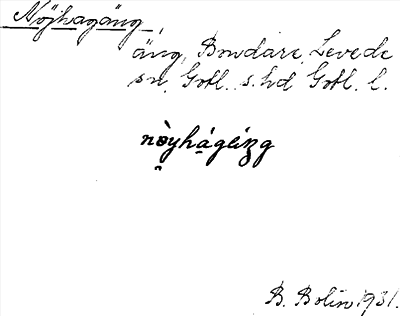 Nöjhagäng,
äng, Bondare, Levede
sn, Gotl. s. hd Gotl. l.
nòyhágéiŋg
B. Bolin 1931.